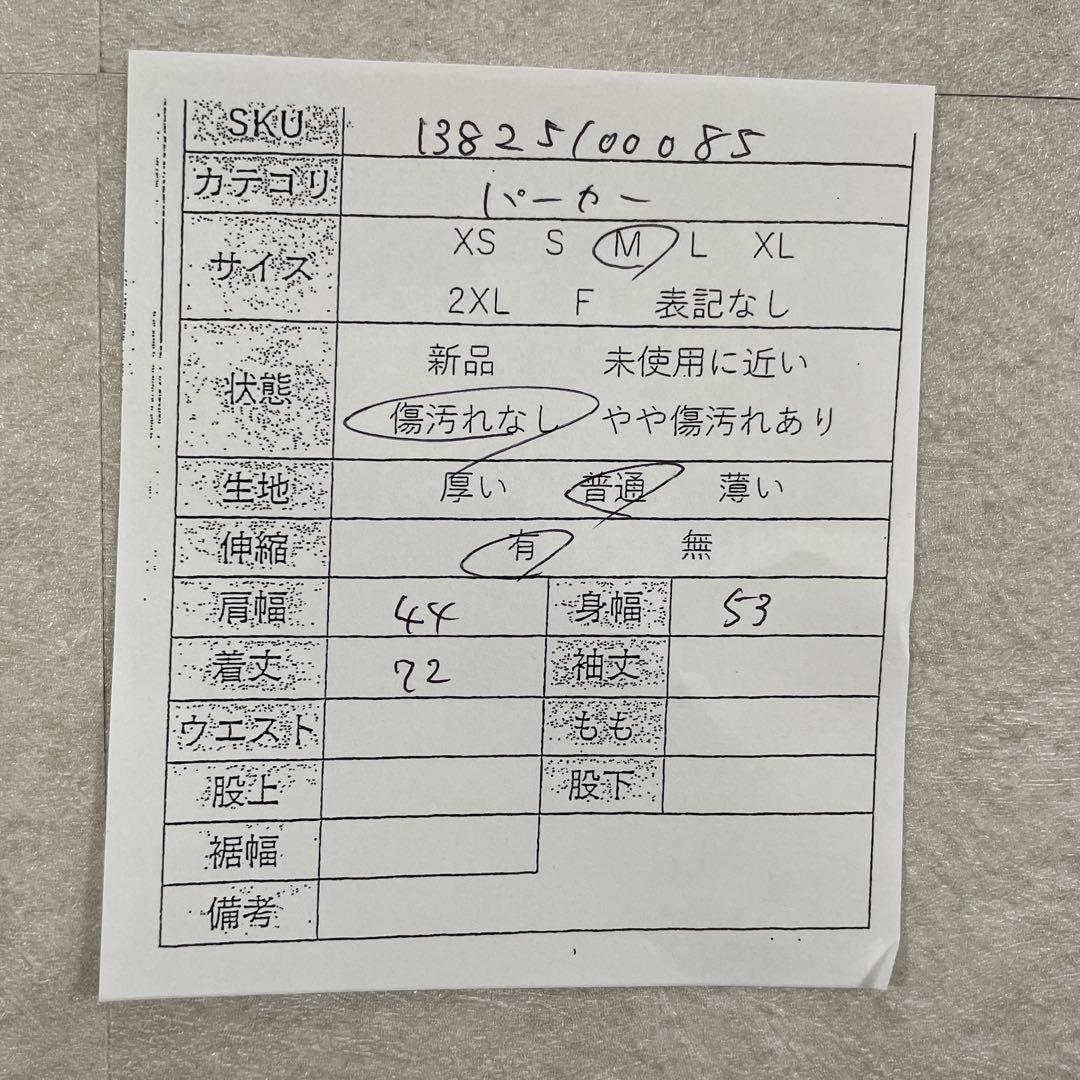 SKU 13825100085
カテゴリ パーカー
サイズ XS S M L XL
2XL F 表記なし
状態 新品 未使用に近い
傷汚れなし やや傷汚れあり
生地 厚い 普通 薄い
伸縮 有 無
肩幅 44 身幅 53
着丈 72 袖丈
ウエスト もも
股上 股下
裾幅
備考